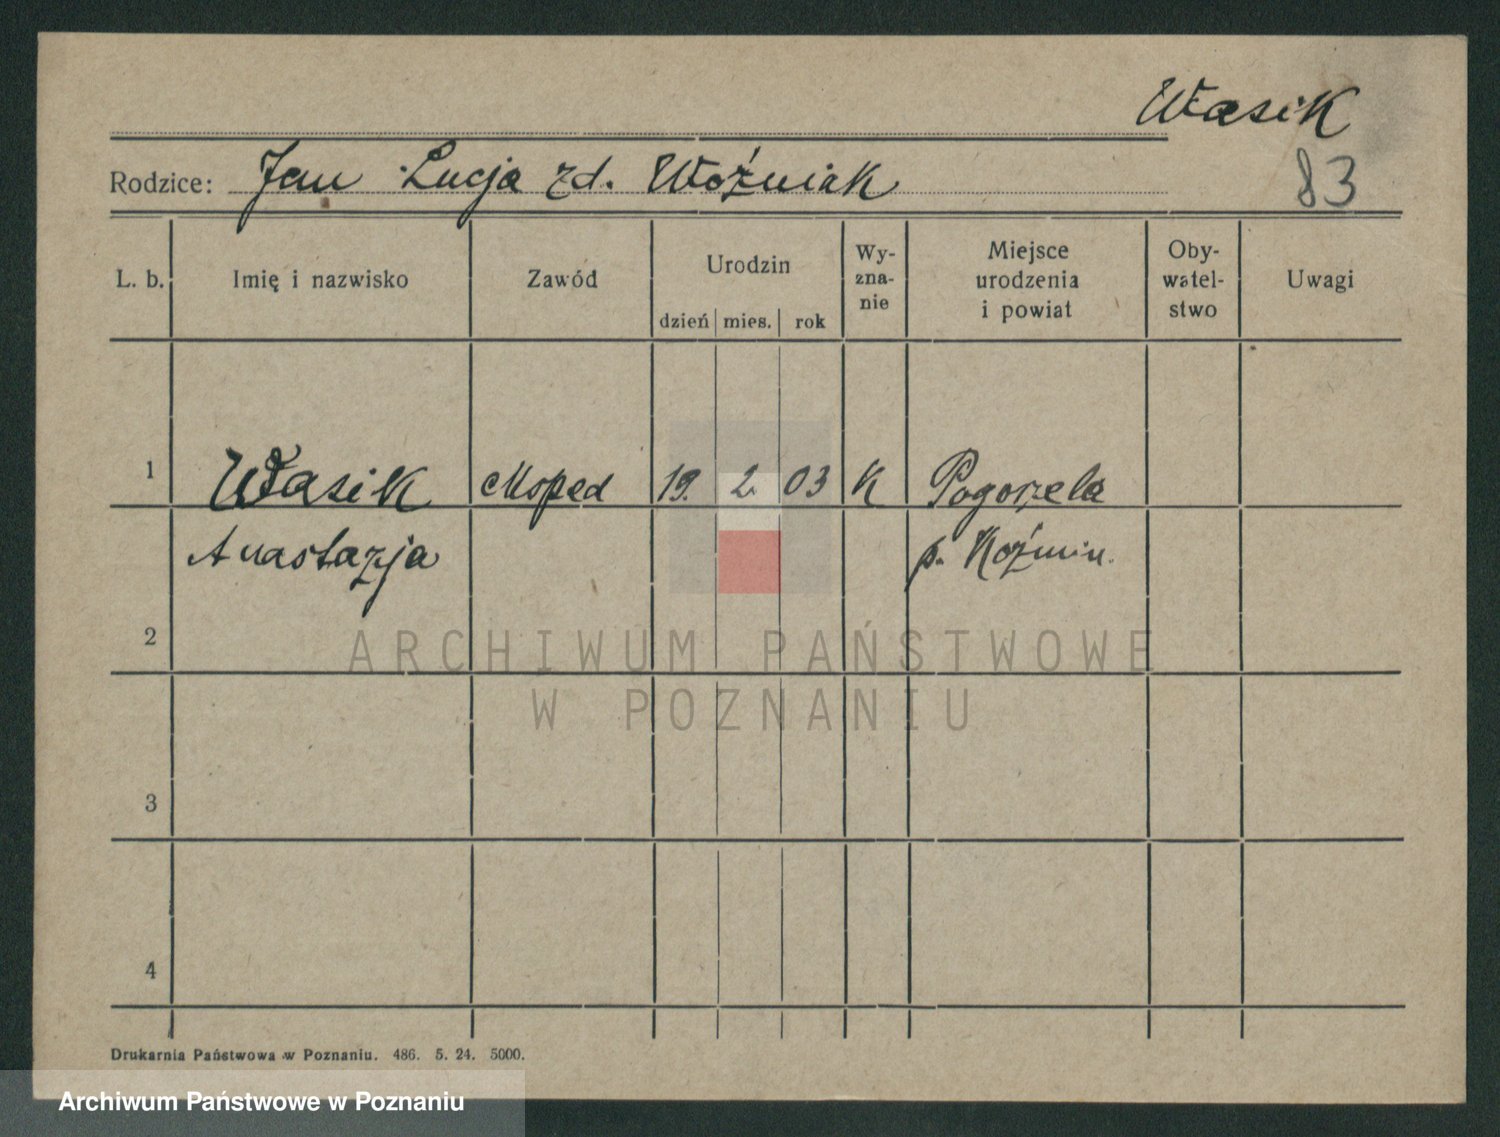 Wasik
Rodzice: Jan Łucja zd. Woźniak
83
L. b. Imię i nazwisko Zawód Urodzin dzień mies. rok Wy-zna-nie Miejsce urodzenia i powiat Oby-watel-stwo Uwagi
1 Wasik Mosped 19. 2. 03 K Pogorzela
Anastazja p. Koźmin.
2
ARCHIWUM PAŃSTWOWE
W POZNANIU
3
4
Drukarnia Państwowa w Poznaniu. 486. 5. 24. 5000.
Archiwum Państwowe w Poznaniu